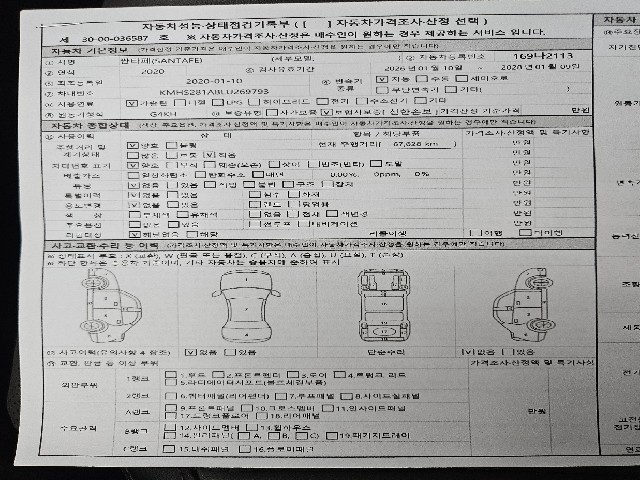 자동차성능·상태점검기록부 ( [ ] 자동차가격조사·산정 선택 )
제 30-00-036587 호 ※ 자동차가격조사·산정은 매수인이 원하는 경우 제공하는 서비스 입니다.
자동차 기본정보 (가격산정 기준가격은 매수인이 자동차가격조사·산정을 원하는 경우에만 적습니다)
① 차명 싼타페(SANTAFE) (세부모델: ) ② 자동차등록번호 169나2113
③ 연식 2020 ④ 검사유효기간
⑤ 최초등록일 2020-01-10 ⑦ 변속기 종류 자동 수동 세미오토
무단변속기 기타( )
⑥ 차대번호
⑧ 사용연료 가솔린 디젤 LPG 하이브리드 전기 수소전기 기타
⑨ 원동기형식 G4KH ⑩ 보증유형 자가보증 보험사보증 가격산정 기준가격 만원
자동차 종합상태
⑪ 사용이력 상 태 항목 / 해당부품 가격조사·산정액 및 특기사항
주행거리 및 계기상태 양호 불량 현재 주행거리 ( 67,628 km ) 만원
많음 보통 적음 만원
차대번호 표기 양호 부식 훼손(오손) 상이 변조(변타) 도말 만원
배출가스 일산화탄소 탄화수소 매연 0.00%, 0ppm, 0% 만원
튜닝 없음 있음 적법 불법 구조 장치 만원
특별이력 없음 있음 침수 화재 만원
용도변경 없음 있음 렌트 영업용 만원
색 상 무채색 유채색 없음 전체 색변경 만원
주요옵션 없음 있음 썬루프 네비게이션 만원
리콜대상 해당없음 해당 리콜이행 이행 미이행
사고·교환·수리 등 이력 (가격조사·산정액 및 특기사항은 매수인이 자동차가격조사·산정을 원하는 경우에만 적습니다)
※ 상태표시 부호 : X (교환), W (판금 또는 용접), C (부식), A (흠집), U (요철), T (손상)
※ 하단 항목은 승용차 기준이며, 기타 자동차는 승용차에 준하여 표시
⑫ 사고이력(유의사항 4 참조) 없음 있음 단순수리 없음 있음
⑬ 교환, 판금 등 이상 부위 가격조사·산정액 및 특기사항
외판부위 1랭크 1.후드 2.프론트펜더 3.도어 4.트렁크 리드
5.라디에이터서포트(볼트체결부품)
2랭크 6.쿼터패널(리어펜더) 7.루프패널 8.사이드실패널
주요골격 A랭크 9.프론트패널 10.크로스멤버 11.인사이드패널
17.트렁크플로어 18.리어패널
만원
B랭크 12.사이드멤버 13.휠하우스
14.필러패널( A, B, C) 19.패키지트레이
C랭크 15.대쉬패널 16.플로어패널